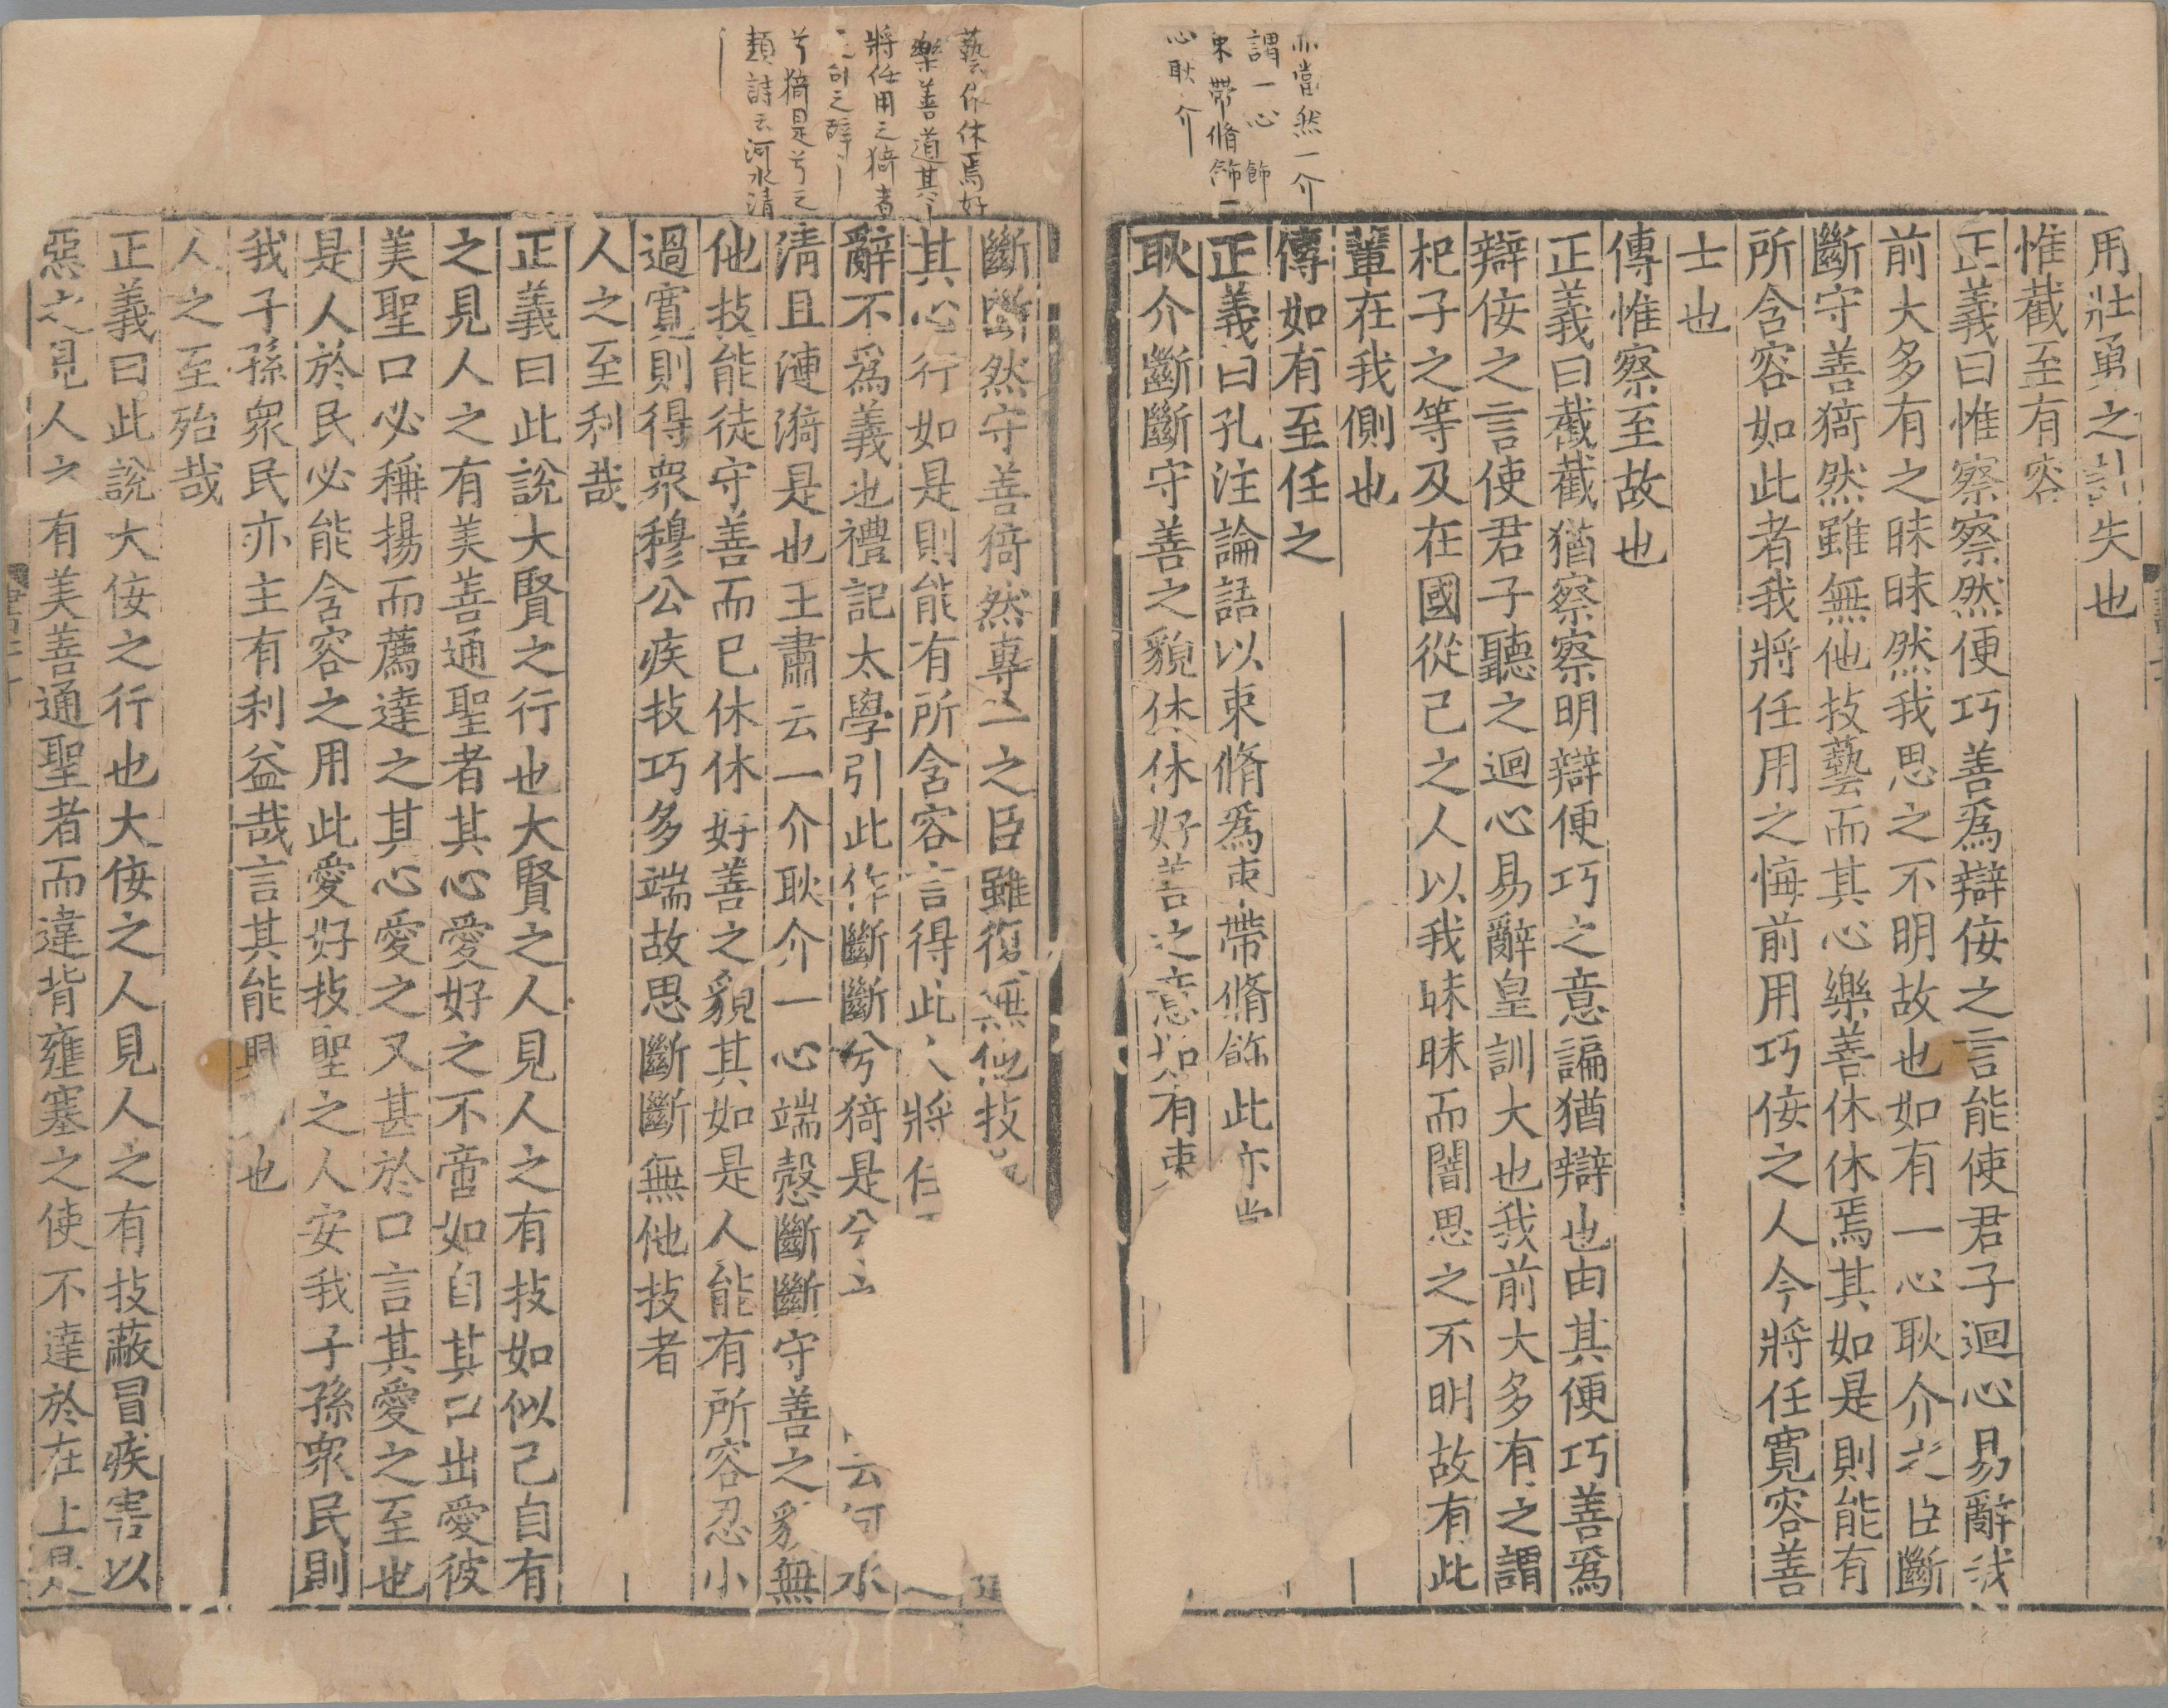 亦當然一介
謂一心飾
束帶脩飾一
心耿介
用壯勇之計失也
惟截至有容
正義曰惟察察然便巧善爲辯佞之言能使君子迴心易辭我
前大多有之昧昧然我思之不明故也如有一心耿介之臣斷
斷守善猗然雖無他技藝而其心樂善休休焉其如是則能有
所含容如此者我將任用之悔前用巧佞之人今將任寬容善
士也
傳惟察至故也
正義曰截截猶察察明辯便巧之意諞猶辯也由其便巧善爲
辯佞之言使君子聽之迴心易辭皇訓大也我前大多有之謂
杞子之等及在國從己之人以我昧昧而闇思之不明故有此
輩在我側也
傳如有至任之
正義曰孔注論語以束脩爲束帶脩飾此亦當
耿介斷斷守善之貌休休好善之意如有束
藝休休焉好
樂善道其
將任用之猗者
之辭
兮猗是兮之
類詩云河水清
斷斷然守善猗然專一之臣雖復無他技
其心行如是則能有所含容言得此人將任
辭不爲義也禮記大學引此作斷斷兮猗是兮之云河水
清且漣漪是也王肅云一介耿介一心端愨斷斷守善之貌無
他技能徒守善而已休休好善之貌其如是人能有所容忍小
過寬則得衆穆公疾技巧多端故思斷斷無他技者
人之至利哉
正義曰此說大賢之行也大賢之人見人之有技如似己自有
之見人之有美善通聖者其心愛好之不啻如自其口出愛彼
美聖口必稱揚而薦達之其心愛之又甚於口言其愛之至也
是人於民必能含容之用此愛好技聖之人安我子孫衆民則
我子孫衆民亦主有利益哉言其能興也
人之至殆哉
正義曰此說大佞之行也大佞之人見人之有技蔽冒疾害以
惡之見人之有美善通聖者而違背壅塞之使不達於在上是人